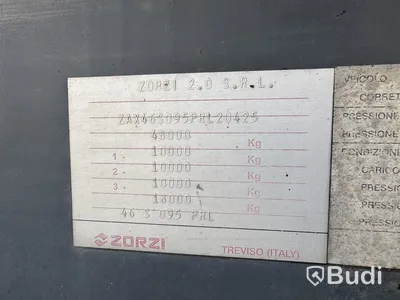 ZORZI 2.0 S.R.L.
ZAX46S095PRL20425
48000 Kg
1 - 10000 Kg
2 - 10000 Kg
3 - 10000 Kg
18000 Kg
46 S 095 PRL
ZORZI
TREVISO (ITALY)
VEICOLO
CORRET
PRESSIONE
PRESSIONE
CONDIZION
CARICO
PRESS
PRESSI
PRESSI
Budi